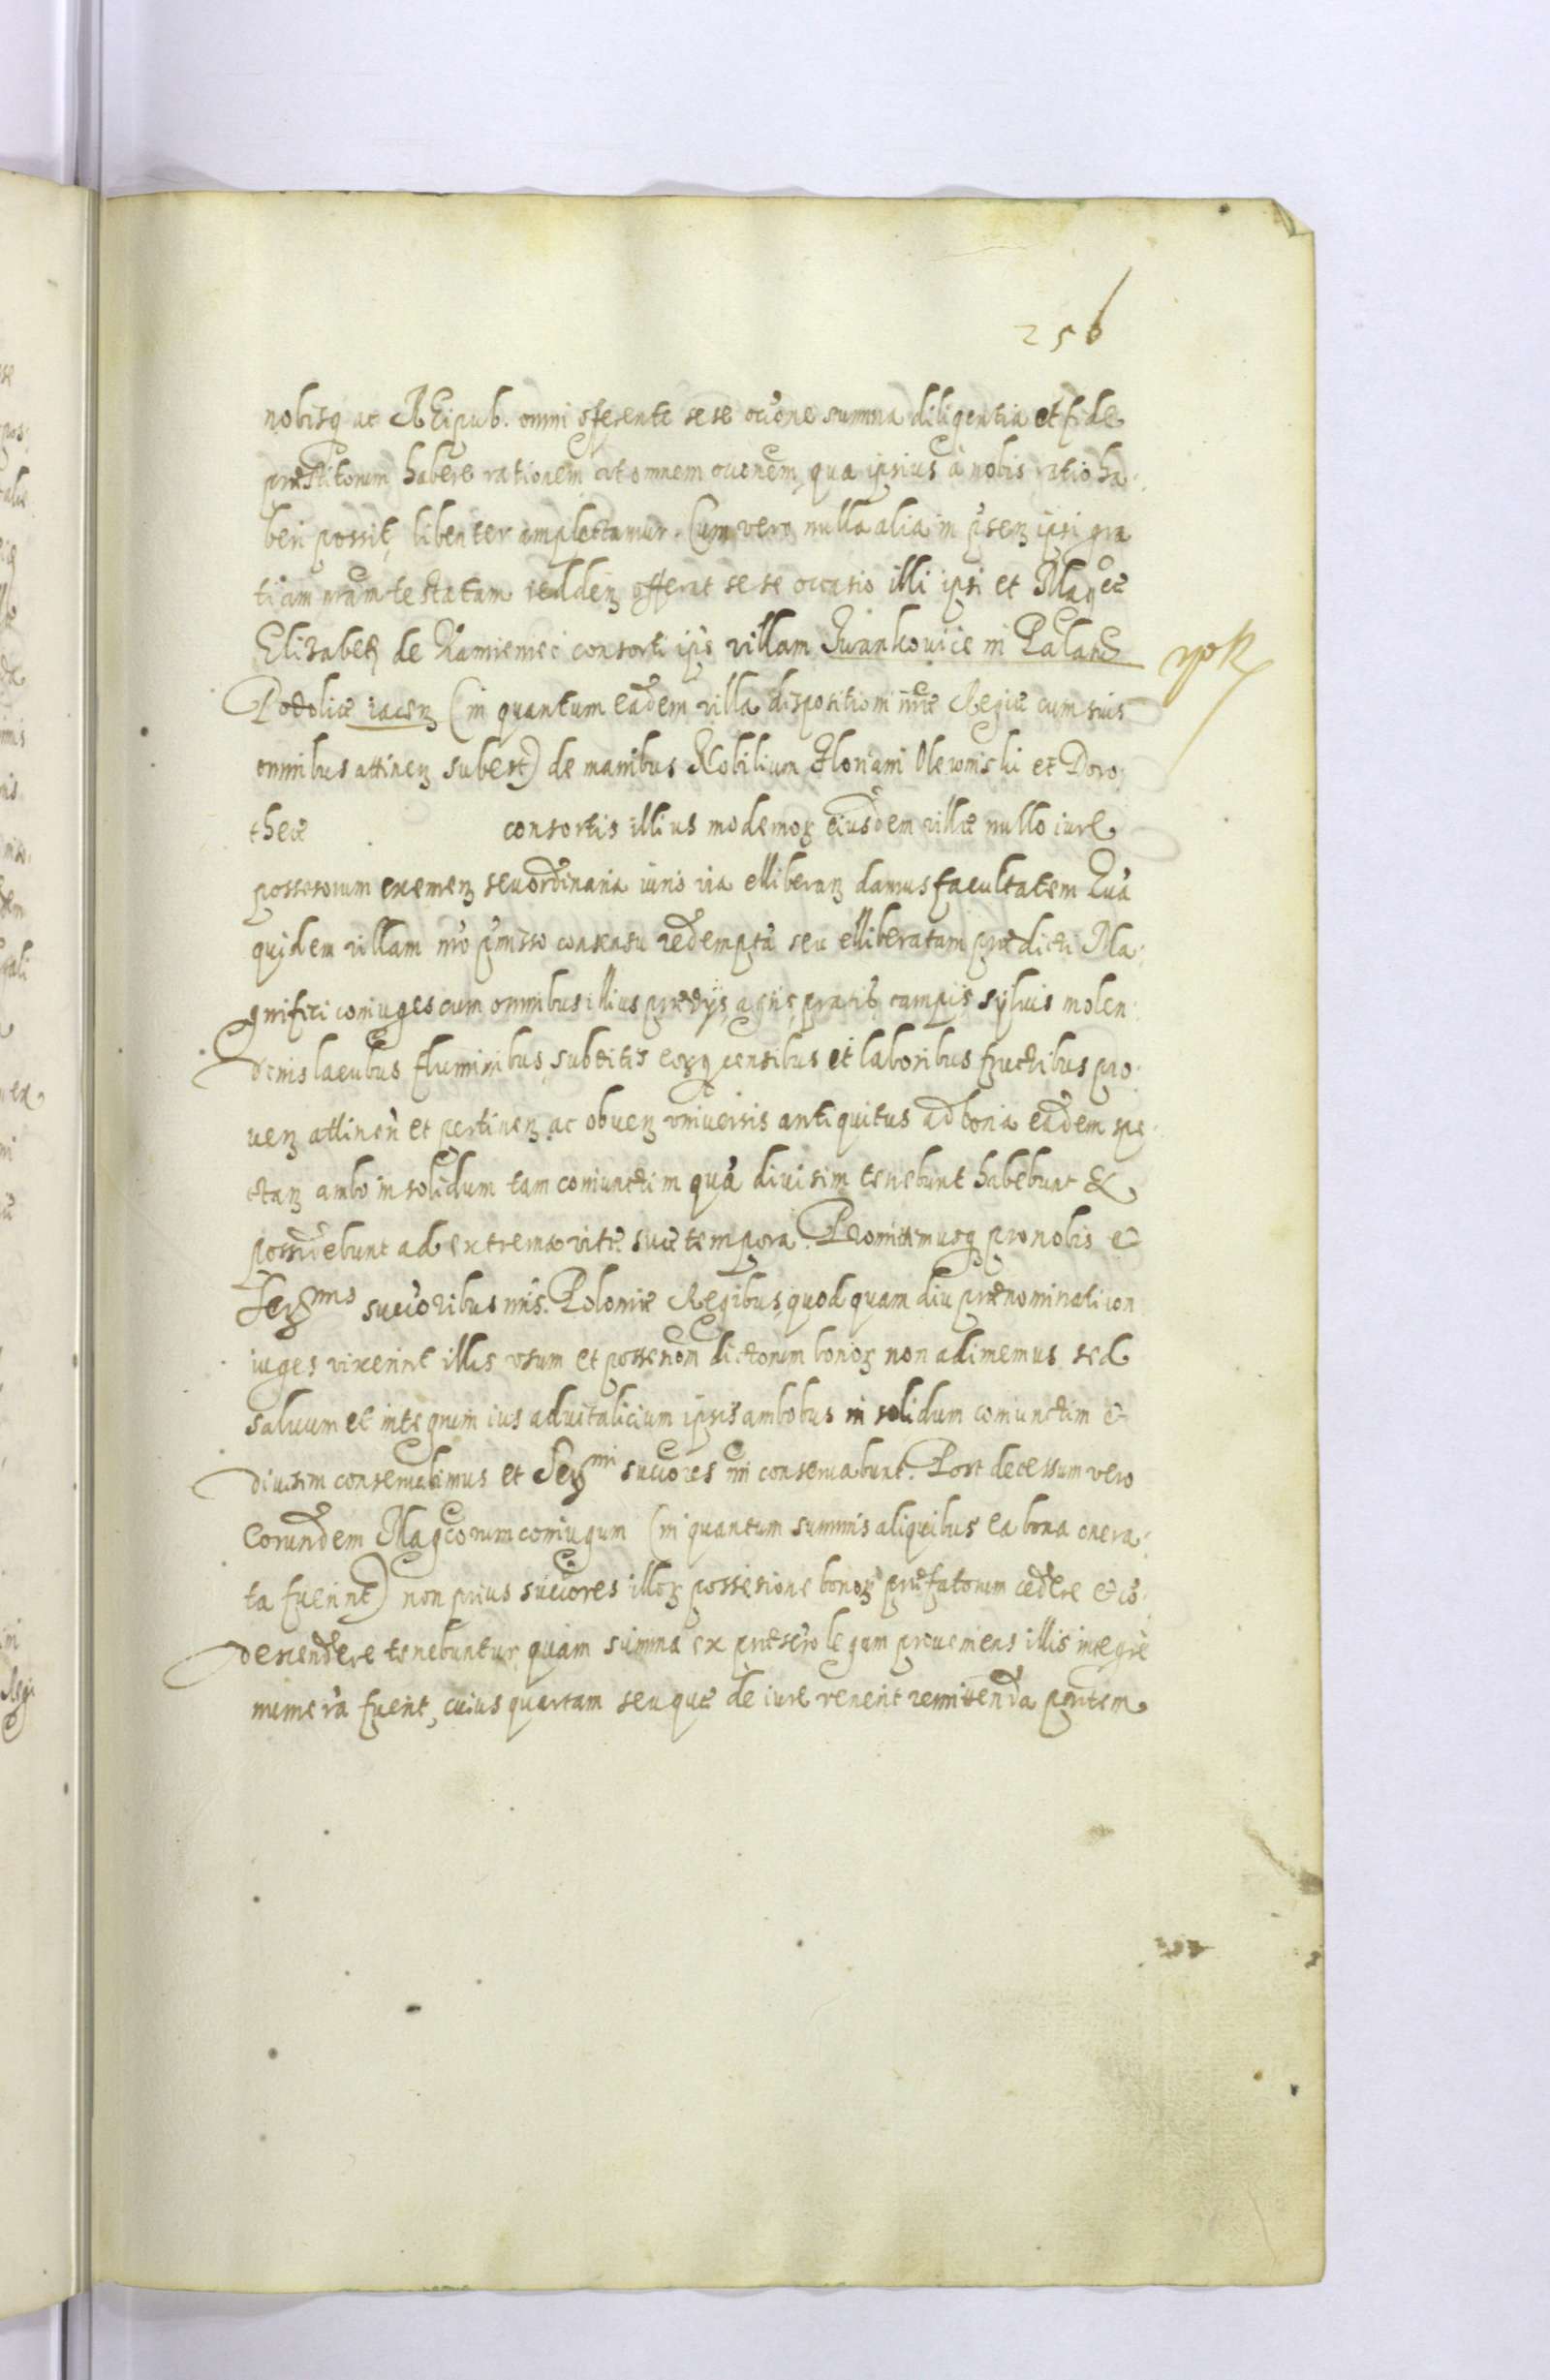 256
nobisq ac REipub. omni oferente sese occione summa diligentia et fide
præstitorum habere rationem et omnem occonem, qua ipsius à nobis ratio ha-
beri possit, libenter amplectamur. Cum vero nulla alia in p̃senꝫ ipsi gra
tiam nr̃am testatam reddenꝫ offerat sese occasio illi ipsi et Magcæ
Elizabeth de Kamieniec consorti ips villam Iwankowice in Palatu
Podoliæ iacenꝫ (in quantum eadem villa dispositioni nr̃æ Regiæ cum suis
omnibus attinenꝫ subest) de manibus Nobilium Floriani Olewinski et Doro
theæ consortis illius modernoꝝ eiusdem villæ nullo iure
possesorum eximenꝫ seu ordinaria iuris via elliberanꝫ damus facultatem Quã
quidem villam nr̃o p̃misso consensu redemptã seu elliberatam prædicti Ma-
gnifici coniuges cum omnibus illius prædijs, agris, pratis campis sylvis molen-
dinis lacubus fluminibus, subditis eorꝝq censibus et laboribus fructibus pro-
uenꝫ attinen et pertinenꝫ ac obuenꝫ vniuersis antiquitus ad bona eadem spe-
ctanꝫ ambo in solidum tam coniunctim quã diuisim tenebunt habebunt &
possidebunt ad extrema vitæ suæ tempora. Promittimusq pro nobis et
Serꝫmis succoribus nr̃is. Poloniæ Regibus, quod quam diu prænominati con
iuges vixerint illis vsum et possesionem dictorum bonoꝝ non adimemus sed
saluum et integrum ius aduitalicium ipsis ambobus in solidum coniunctim et
diuisim conseruabimus et Serꝫmi succores nr̃i conseruabunt. Post decessum vero
Eorundem Magcorum coniugum (in quantum summis aliquibus ea bona onera-
ta fuerint) non prius succores illoꝝ possesione bonoꝝ præfatorum cedere et cõ-
descendere tenebuntur, quam summa ex præscro legum proueniens illis integre
numerã fuerit, cuius quartam seu quæ de iure venerit remittenda partem